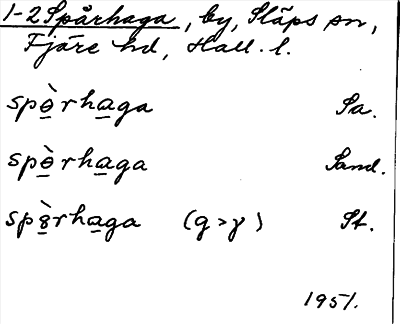 1-2 Spårhaga, by, Släps sn,
Fjäre hd, Hall. l.
spo̱̊̀rha̱ga Sa.
spò̱rha̱ga Sand.
spȣ̱̀rha̱ga (g>ɣ) St.
1951.